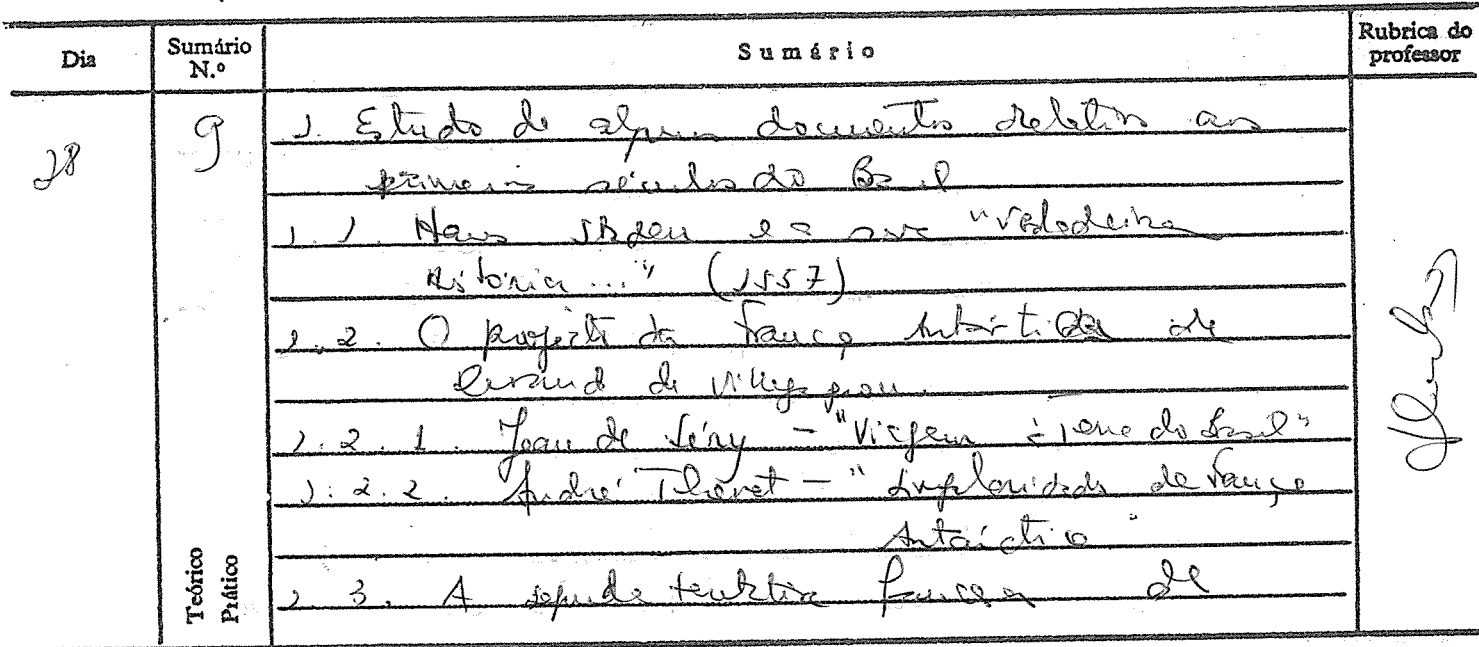 Dia Sumário N.º Sumário Rubrica do professor
28 9 1. Estudo de alguns documentos relativos aos
primeiros séculos do Brasil
1.1. Hans Staden e a sua "Verdadeira
História..." (1557)
1.2. O projecto da França Antártida de
Durand de Villegagnon.
1.2.1. Jean de Léry - "Viagem à Terra do Brasil"
1.2.2. André Thevet - "Singularidades da França
Antárctica"
1.3. A segunda tentativa francesa de
Teórico
Prático